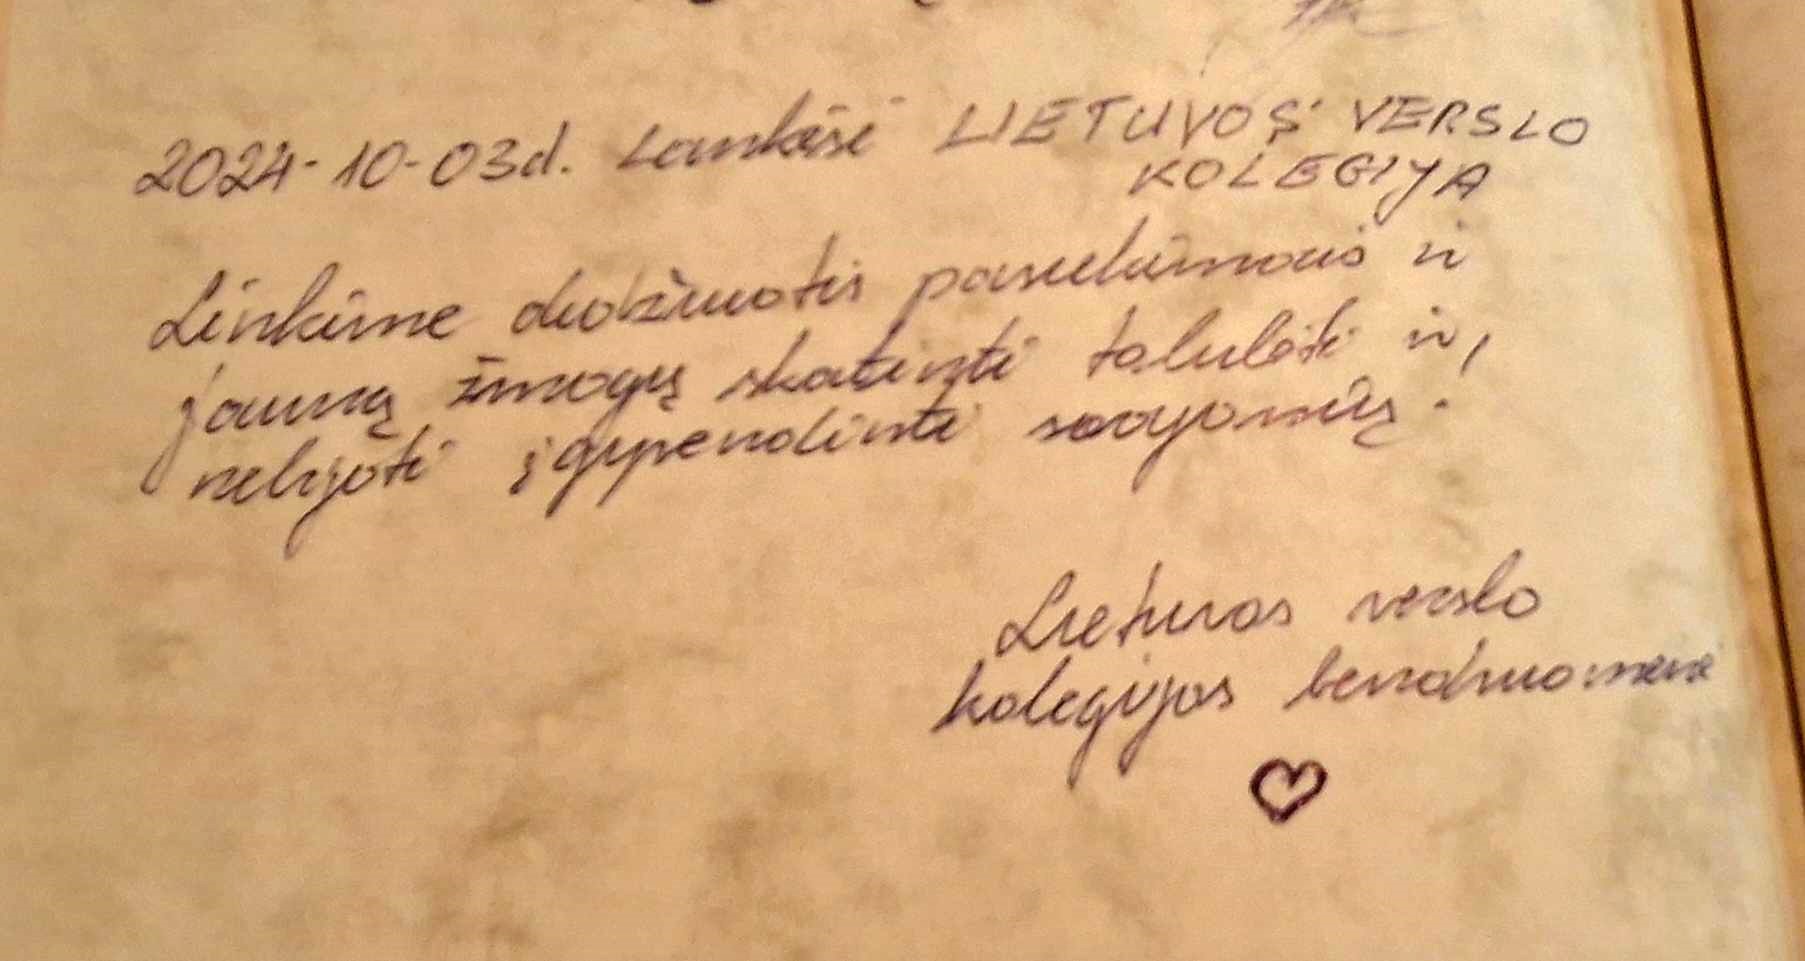 2024-10-03d. Lankėsi LIETUVOS VERSLO
KOLEGIJA
Linkime didžiuotis pasiekimais ir
jauną žmogų skatinti tobulėti ir
nebijoti įgyvendinti svajonių!
Lietuvos verslo
kolegijos bendruomenė